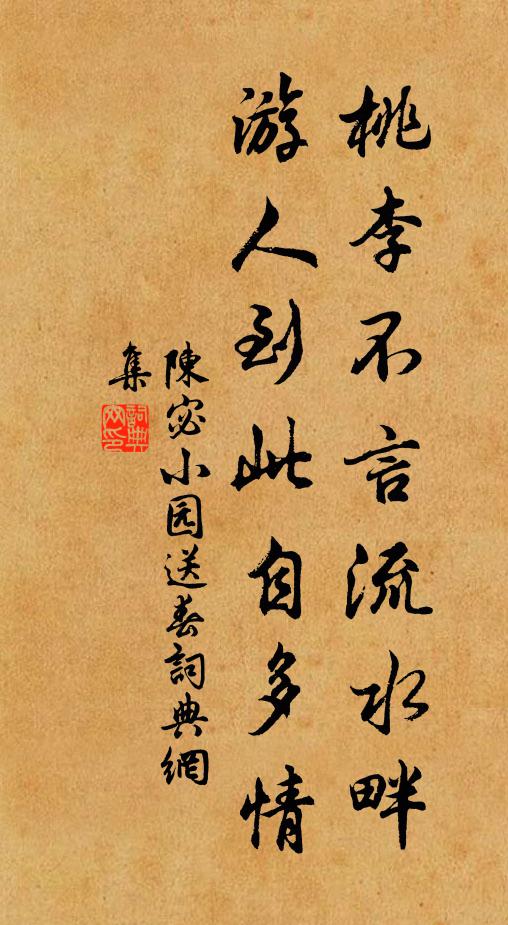 桃李不言流水畔
游人到此自多情
陳宓小园送春詞典網
集
詞典網印